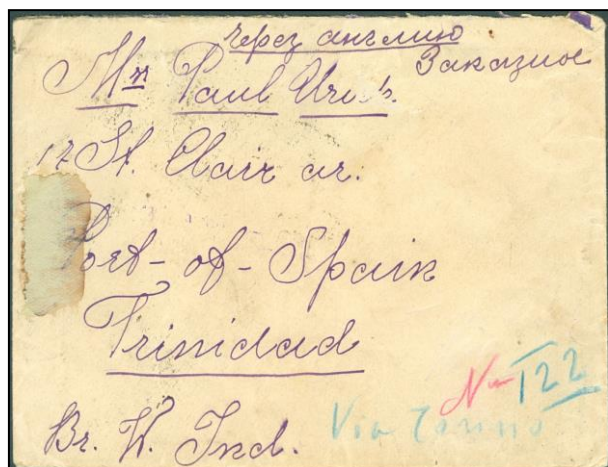 через англию
Заказное
Mrs Paul
17 St. Clair av.
Port-of-Spain
Trinidad
Br. W. Ind.
No 122
Via